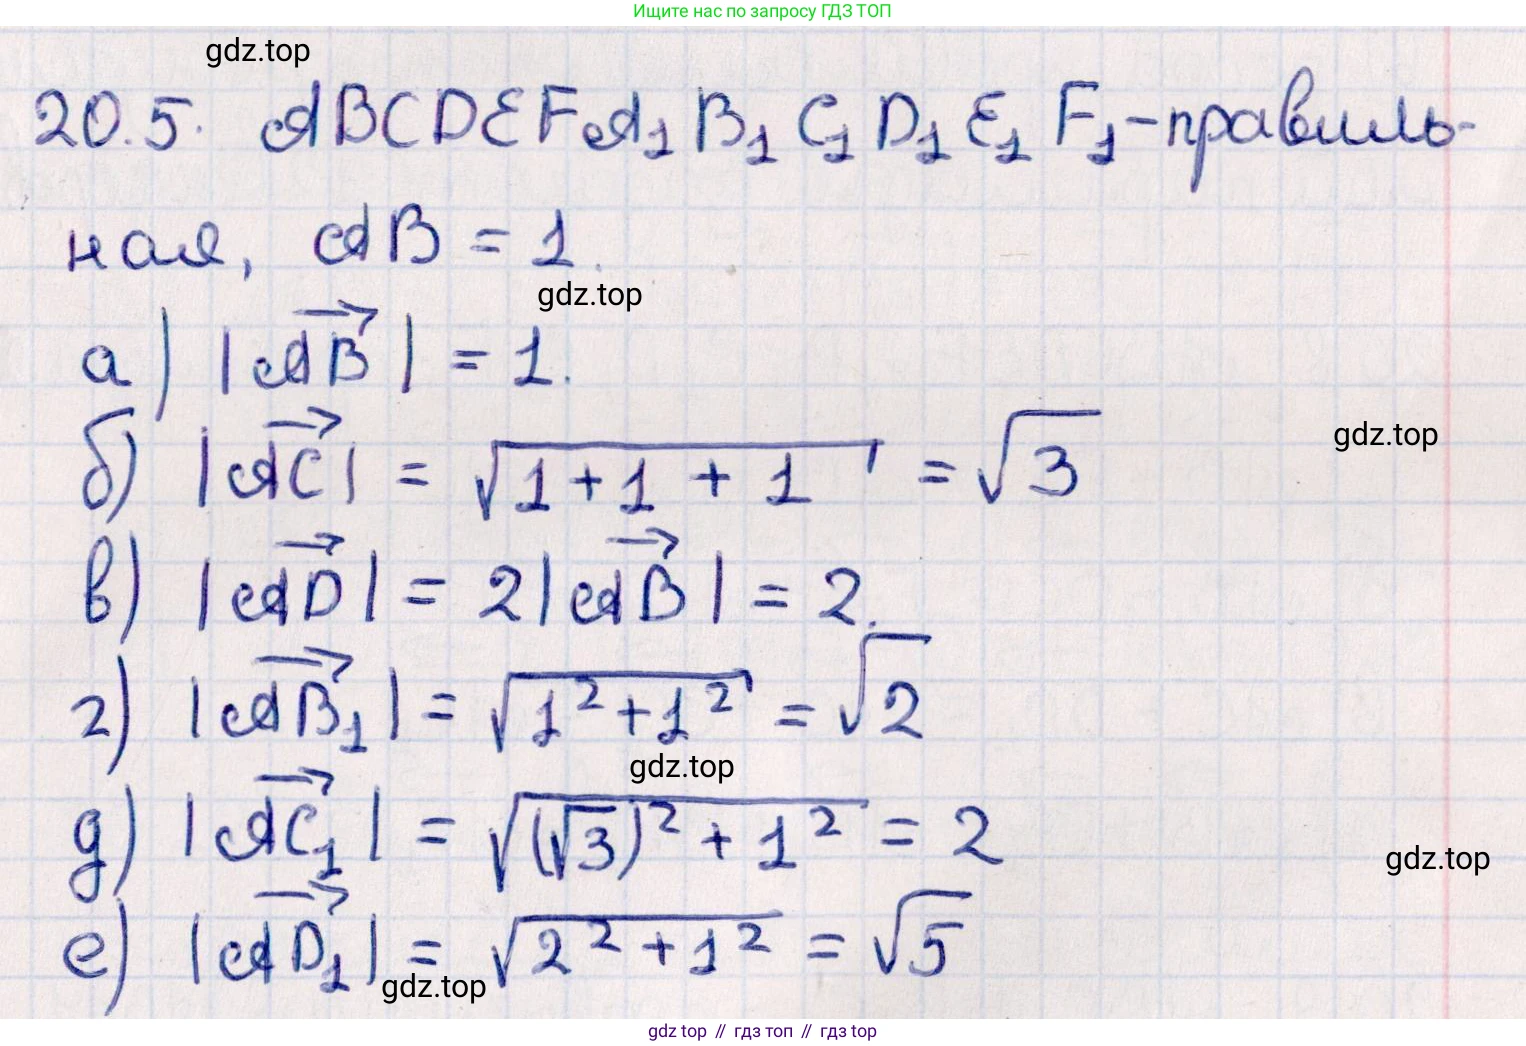 Ищите нас по запросу ГДЗ ТОП
gdz.top
20.5. ABCDEFA₁B₁C₁D₁E₁F₁-правиль-
ная, AB = 1.
gdz.top
а) |\overrightarrow{AB}| = 1.
б) |\overrightarrow{AC}| = √(1+1+1) = √3
gdz.top
в) |\overrightarrow{AD}| = 2|\overrightarrow{AB}| = 2.
г) |\overrightarrow{AB₁}| = √(1²+1²) = √2
gdz.top
д) |\overrightarrow{AC₁}| = √((√3)²+1²) = 2
gdz.top
е) |\overrightarrow{AD₁}| = √(2²+1²) = √5
gdz.top
gdz top // гдз топ // гдз top